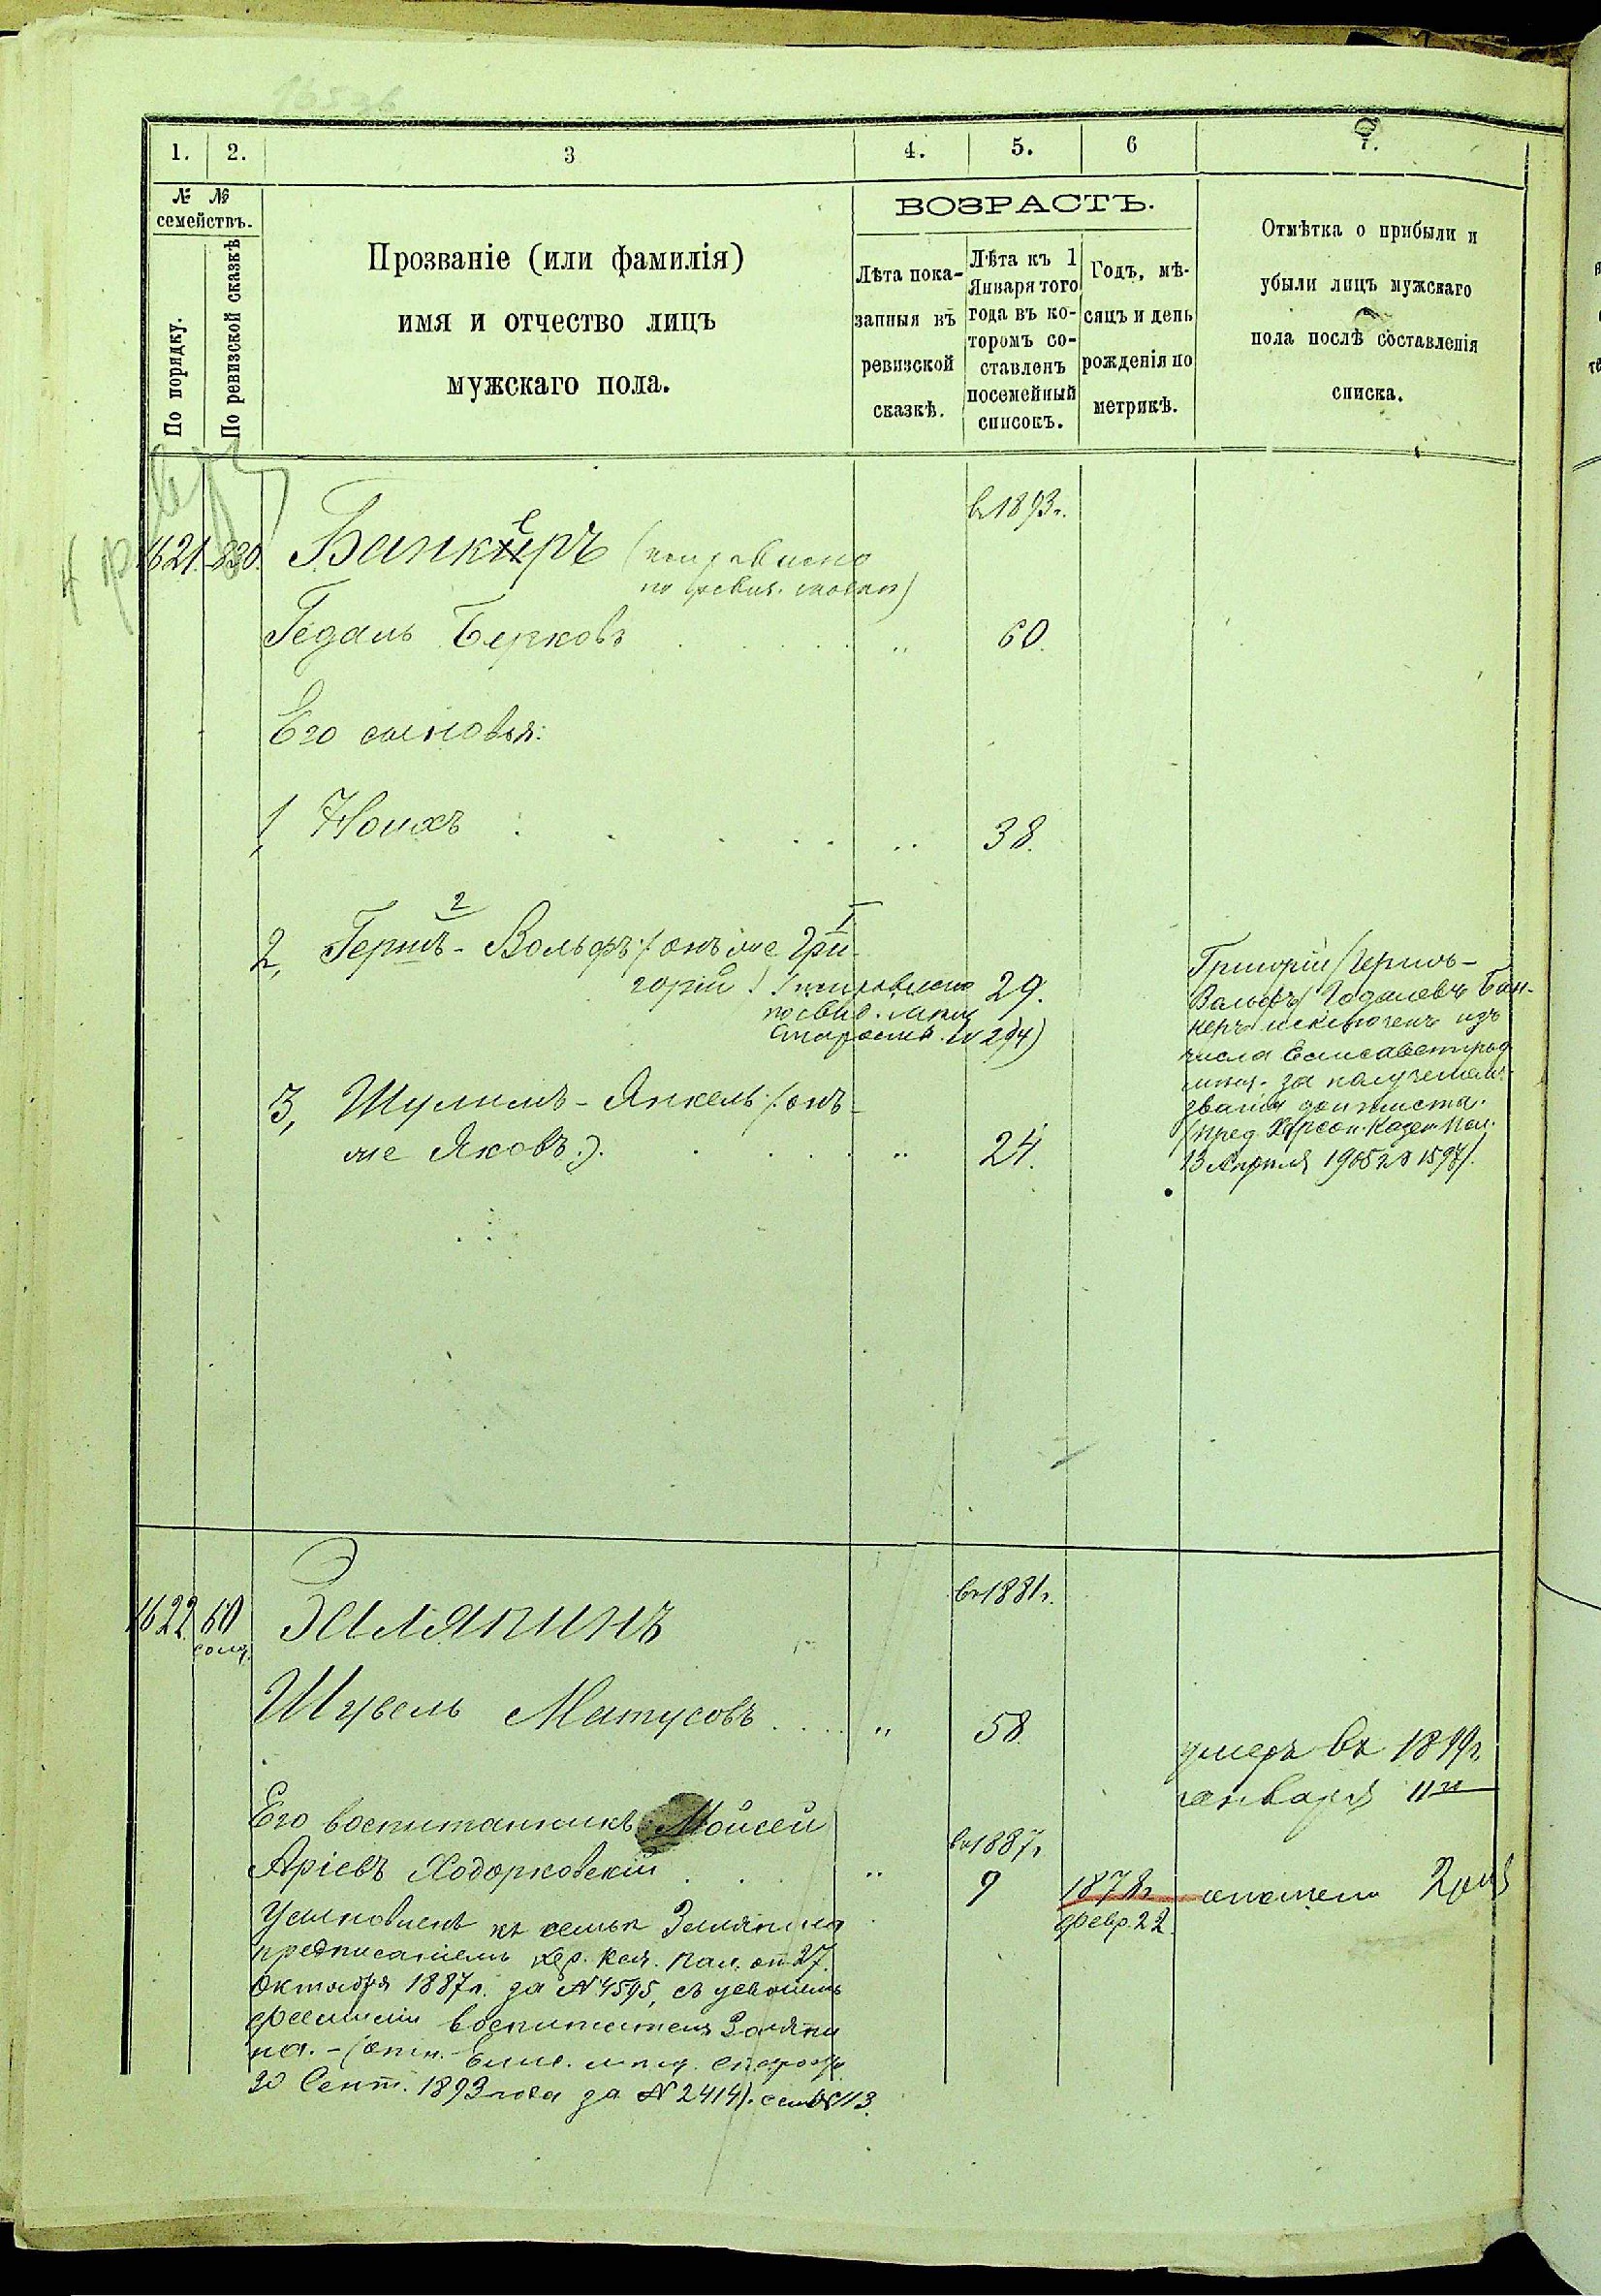 1. 2. 3 4. 5. 6 7.
№ №
семействъ.
По порядку.
По ревизской сказкѣ
Прозваніе (или фамилія)
имя и отчество лицъ
мужскаго пола.
ВОЗРАСТЪ.
Лѣта пока-
занныя въ
ревизской
сказкѣ.
Лѣта къ 1
Января того
года въ ко-
торомъ со-
ставленъ
посемейный
списокъ.
Годъ, мѣ-
сяцъ и день
рожденія по
метрикѣ.
Отмѣтка о прибыли и
убыли лицъ мужскаго
пола послѣ составленія
списка.
въ 1893г.
1621. 830. Банкеръ (исправлено
по ревиз. сказкѣ)
Гедаль Берковъ " 60.
Его сыновья:
1, Ноихъ " 38.
2, Гершъ-Вольфъ (онъ же Гри-
горій) (исправлено 29.
по свид. мѣщ.
Старосты № 294)
Григорій (Гершъ-
Вольфъ) Гедалевъ Бан-
керъ исключенъ изъ
числа Елисаветград.
мѣщ. за полученіем
званія дантиста.
(пред. Херсон. Казен. Пал.
13 Апрѣля 1905 № 1597).
3, Шулимъ-Янкель (онъ-
же Яковъ). " 24.
въ 1881г.
1622. 60 Землякинъ
Шувель Матусовъ " 58.
умеръ въ 1899г.
января 11го
Его воспитанникъ Мойсей
въ 1887г.
Аріевъ Ходорковскій " 9 1878г.
февр. 22
Усыновленъ къ семьѣ Землякина
предписаніемъ Хер. Каз. Пал. от 27.
Октября 1887г. за № 4595, съ
фамиліи воспитателя Земляки
на. - (отн. Елис. мѣщ. Старосты
20 Сент. 1893 года за № 2414).